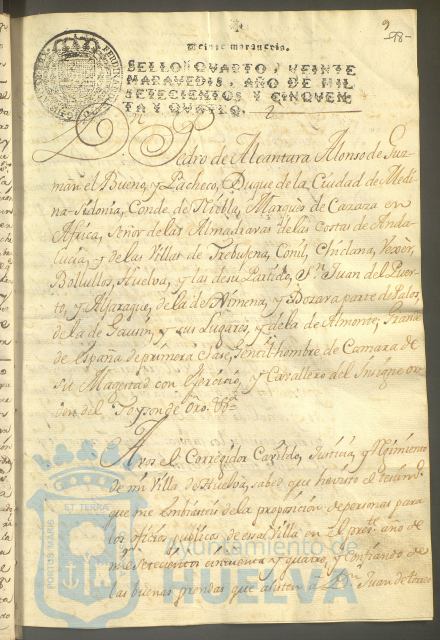 9
98-
Veinte maravedis.
SELLO QVARTO, VEINTE
MARAVEDIS, AÑO DE MIL
SETECIENTOS Y CINQVEN-
TA Y QVATRO.
Dn Pedro de Alcantara Alonso de Guz-
man el Bueno, y Pacheco, Duque de la Ciudad de Medi-
na-Sidonia, Conde de Niebla, Marquès de Cazaza en
Africa, Señor de las Almadravas de las Costas de Anda-
lucia, y de las Villas de Trebujena, Conil, Chiclana, Vexèr,
Bollullos, Huelva, y las de su Partido, Sn Juan del Puer-
to, y Aljaraque, de la de Ximena, y parte de Palos,
de la de Gausin, y sus Lugares, y de la de Almonte, Grande
de España de primera Clase, Gentilhombre de Camara de
Su Magestad con Exercicio, y Cavallero del Insigne or-
den del Toyson de Oro. &ª
A vos el Corregidor Cavildo, Justicia, y Regimiento
de mi Villa de Huelva, sabed que haviendo
que me embiasteis de la proposicion de personas para
los oficios publicos de esa Villa en el preste. año de
mil setecientos cinquenta y quatro, y confiando de
las buenas prendas que asisten a Dn Juan de
PORTUS MARIS ET TERRAE
Ayuntamiento de
HUELVA